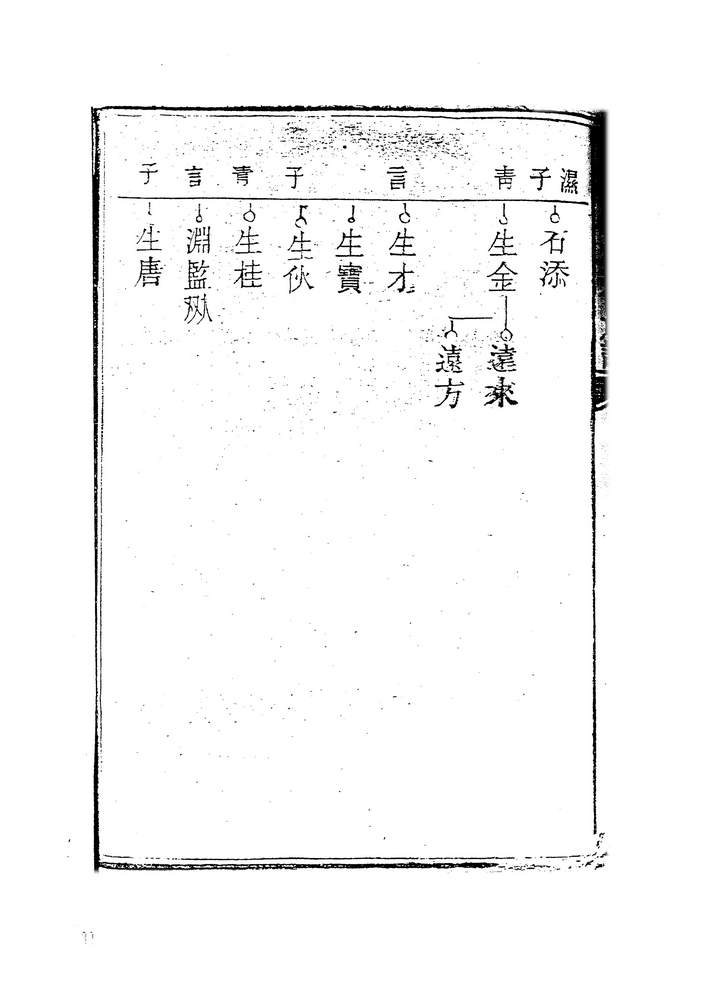 濕子
石添
青
生金
遠來
遠方
言
生才
生寶
子
生伙
青
生桂
言
淵監
子
生唐